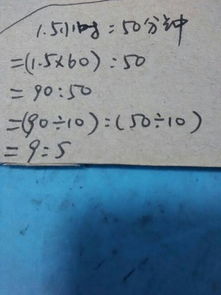 1.5小时:50分钟
=(1.5×60):50
=90:50
=(90÷10):(50÷10)
=9:5